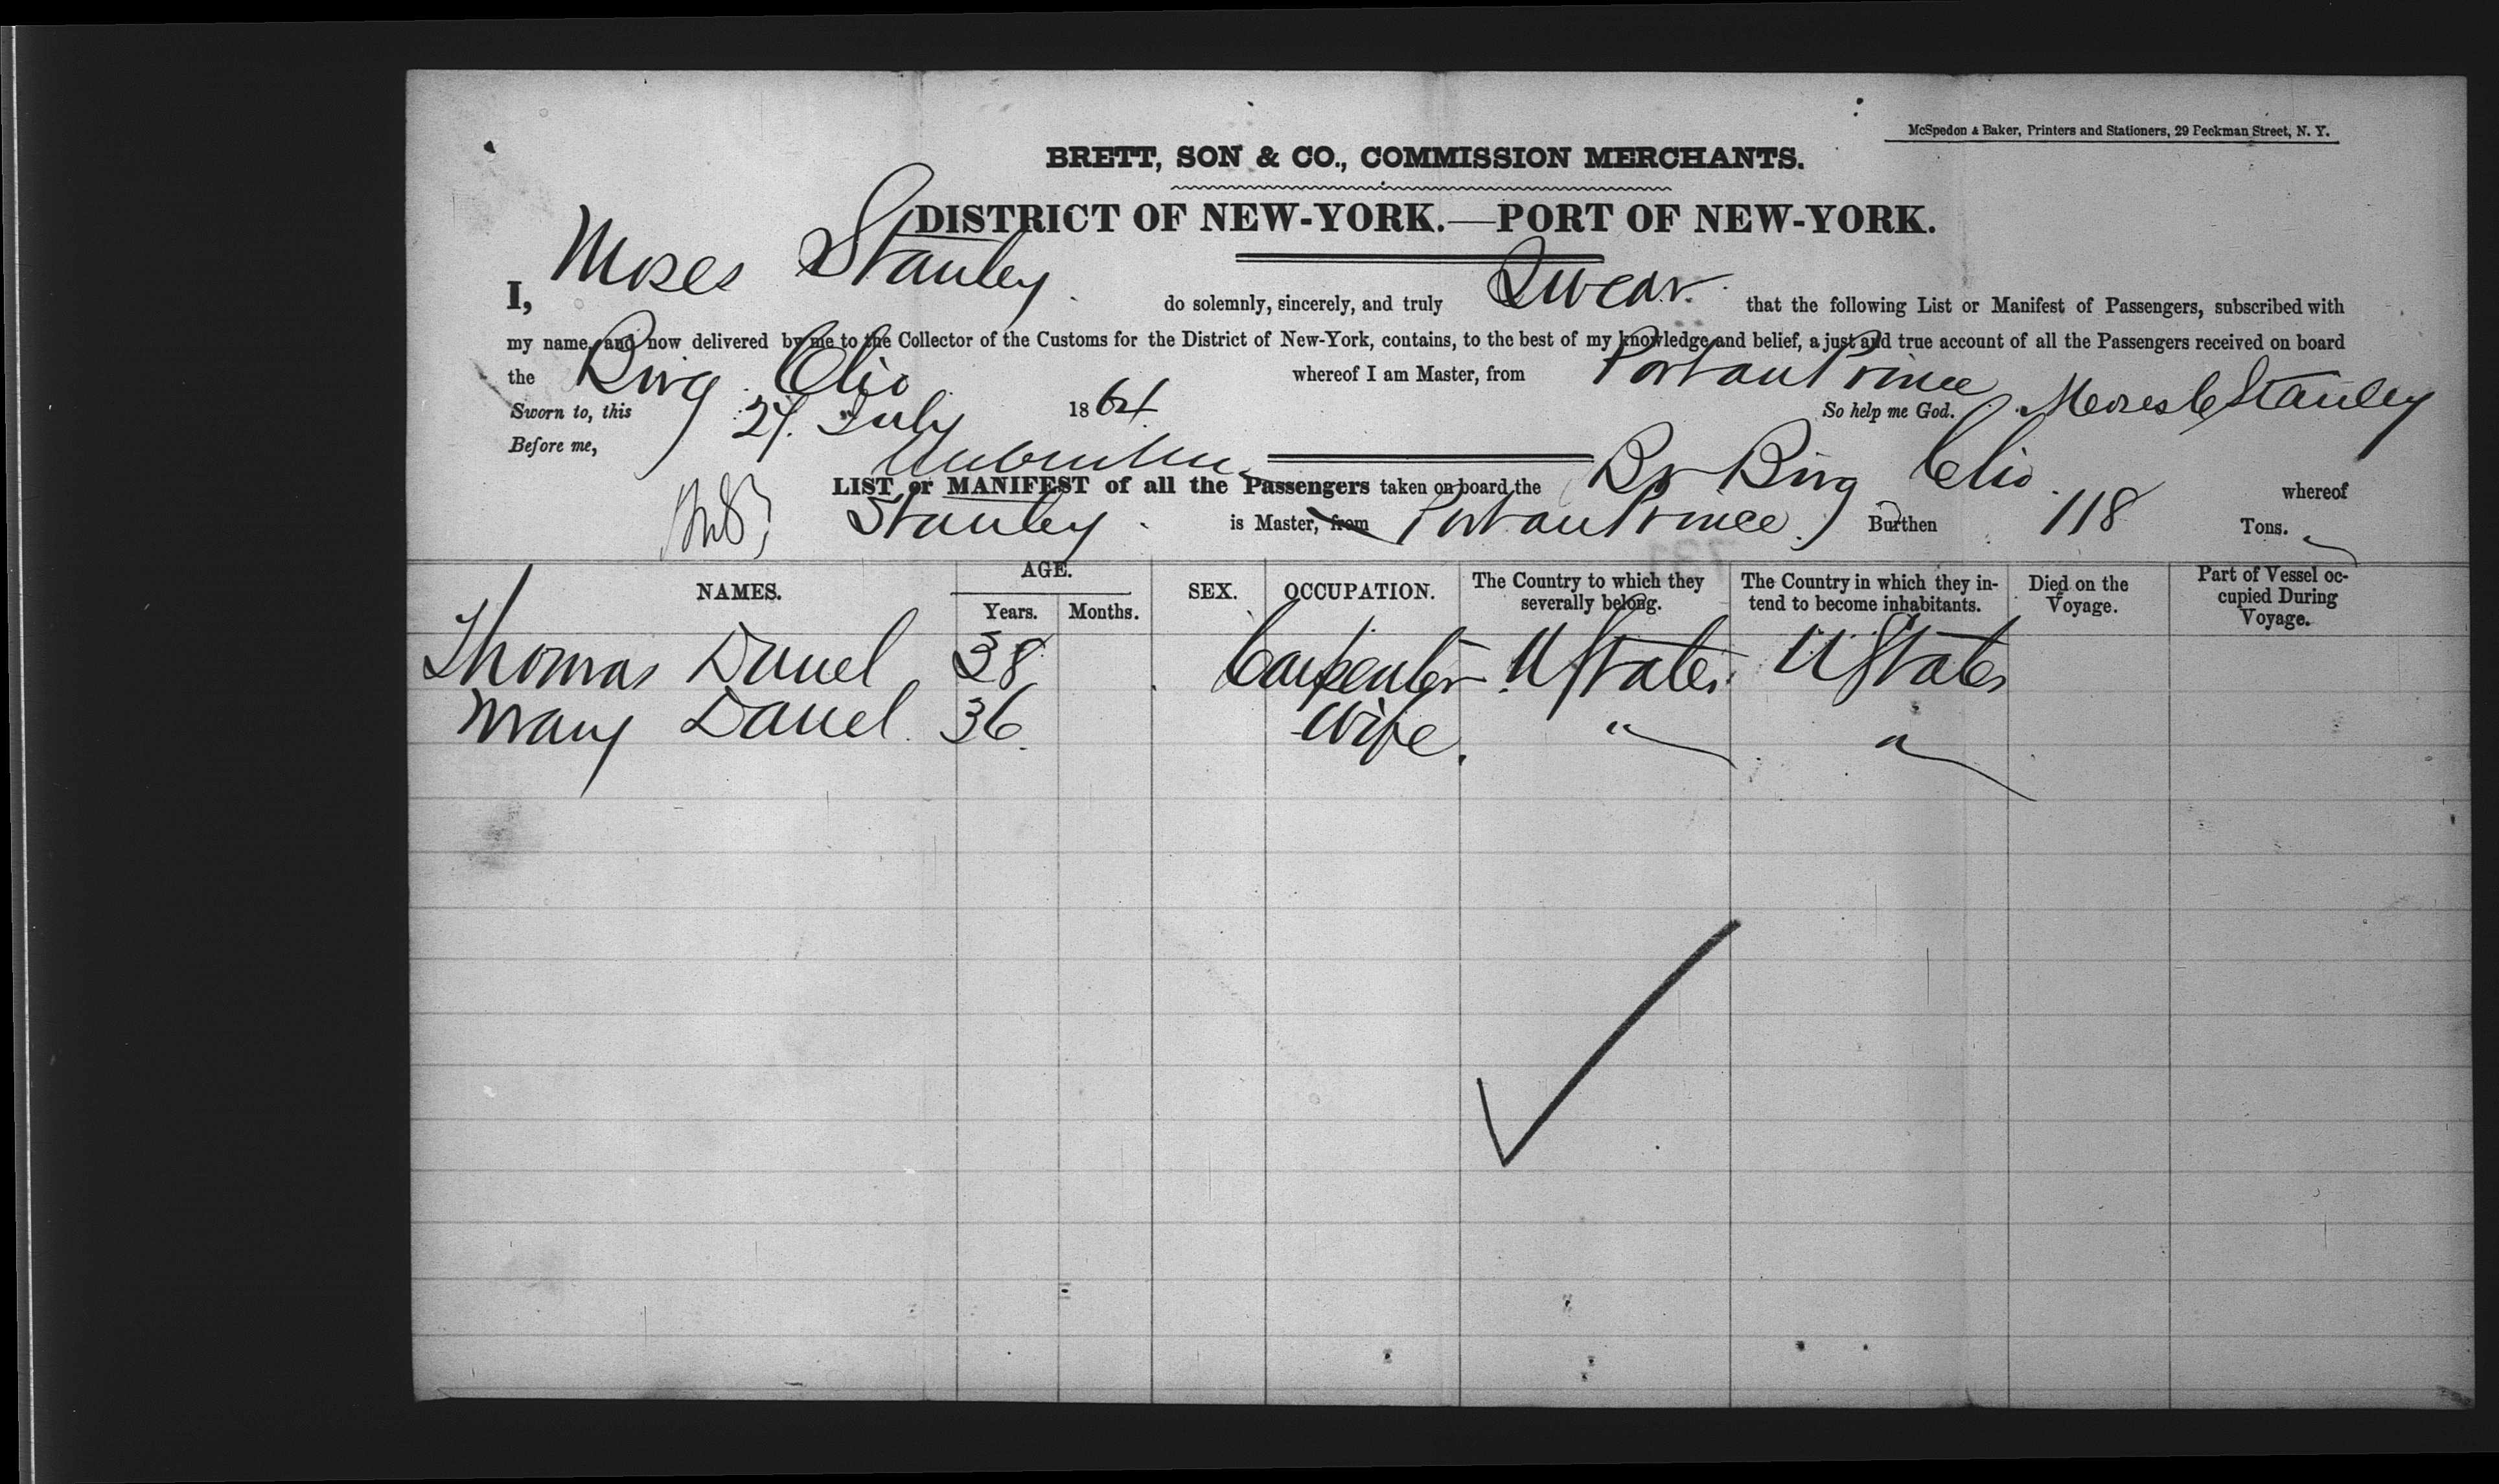 McSpedon & Baker, Printers and Stationers, 29 Beekman Street, N. Y.
BRETT, SON & CO., COMMISSION MERCHANTS.
DISTRICT OF NEW-YORK.—PORT OF NEW-YORK.
I, Moses Stanley do solemnly, sincerely, and truly Swear that the following List or Manifest of Passengers, subscribed with
my name, and now delivered by me to the Collector of the Customs for the District of New-York, contains, to the best of my knowledge and belief, a just and true account of all the Passengers received on board
the Brig Clio whereof I am Master, from Port au Prince
Sworn to, this 27. July 1864 So help me God. Moses C Stanley
Before me,
LIST or MANIFEST of all the Passengers taken on board the Br Brig Clio whereof
Stanley is Master, from Port au Prince Burthen 118 Tons.
NAMES. AGE. SEX. OCCUPATION. The Country to which they severally belong. The Country in which they intend to become inhabitants. Died on the Voyage. Part of Vessel occupied During Voyage.
Years. Months.
Thomas Daniel 38 Carpenter U States U States
Mary Daniel 36 Wife " "